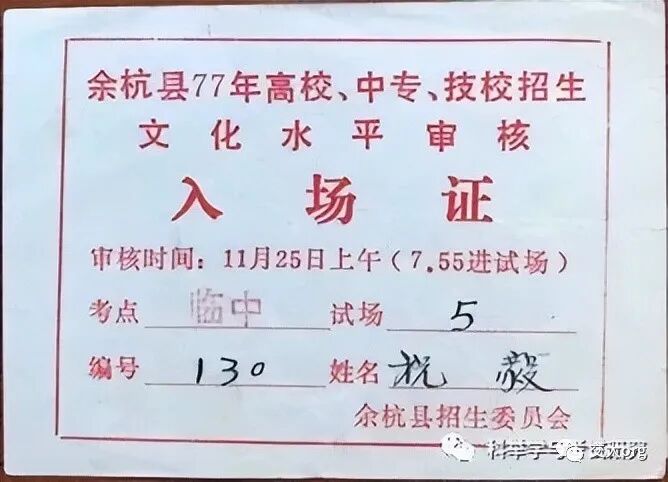 余杭县77年高校、中专、技校招生
文化水平审核
入场证
审核时间：11月25日上午（7.55进试场）
考点 临中 试场 5
编号 130 姓名 祝毅
余杭县招生委员会